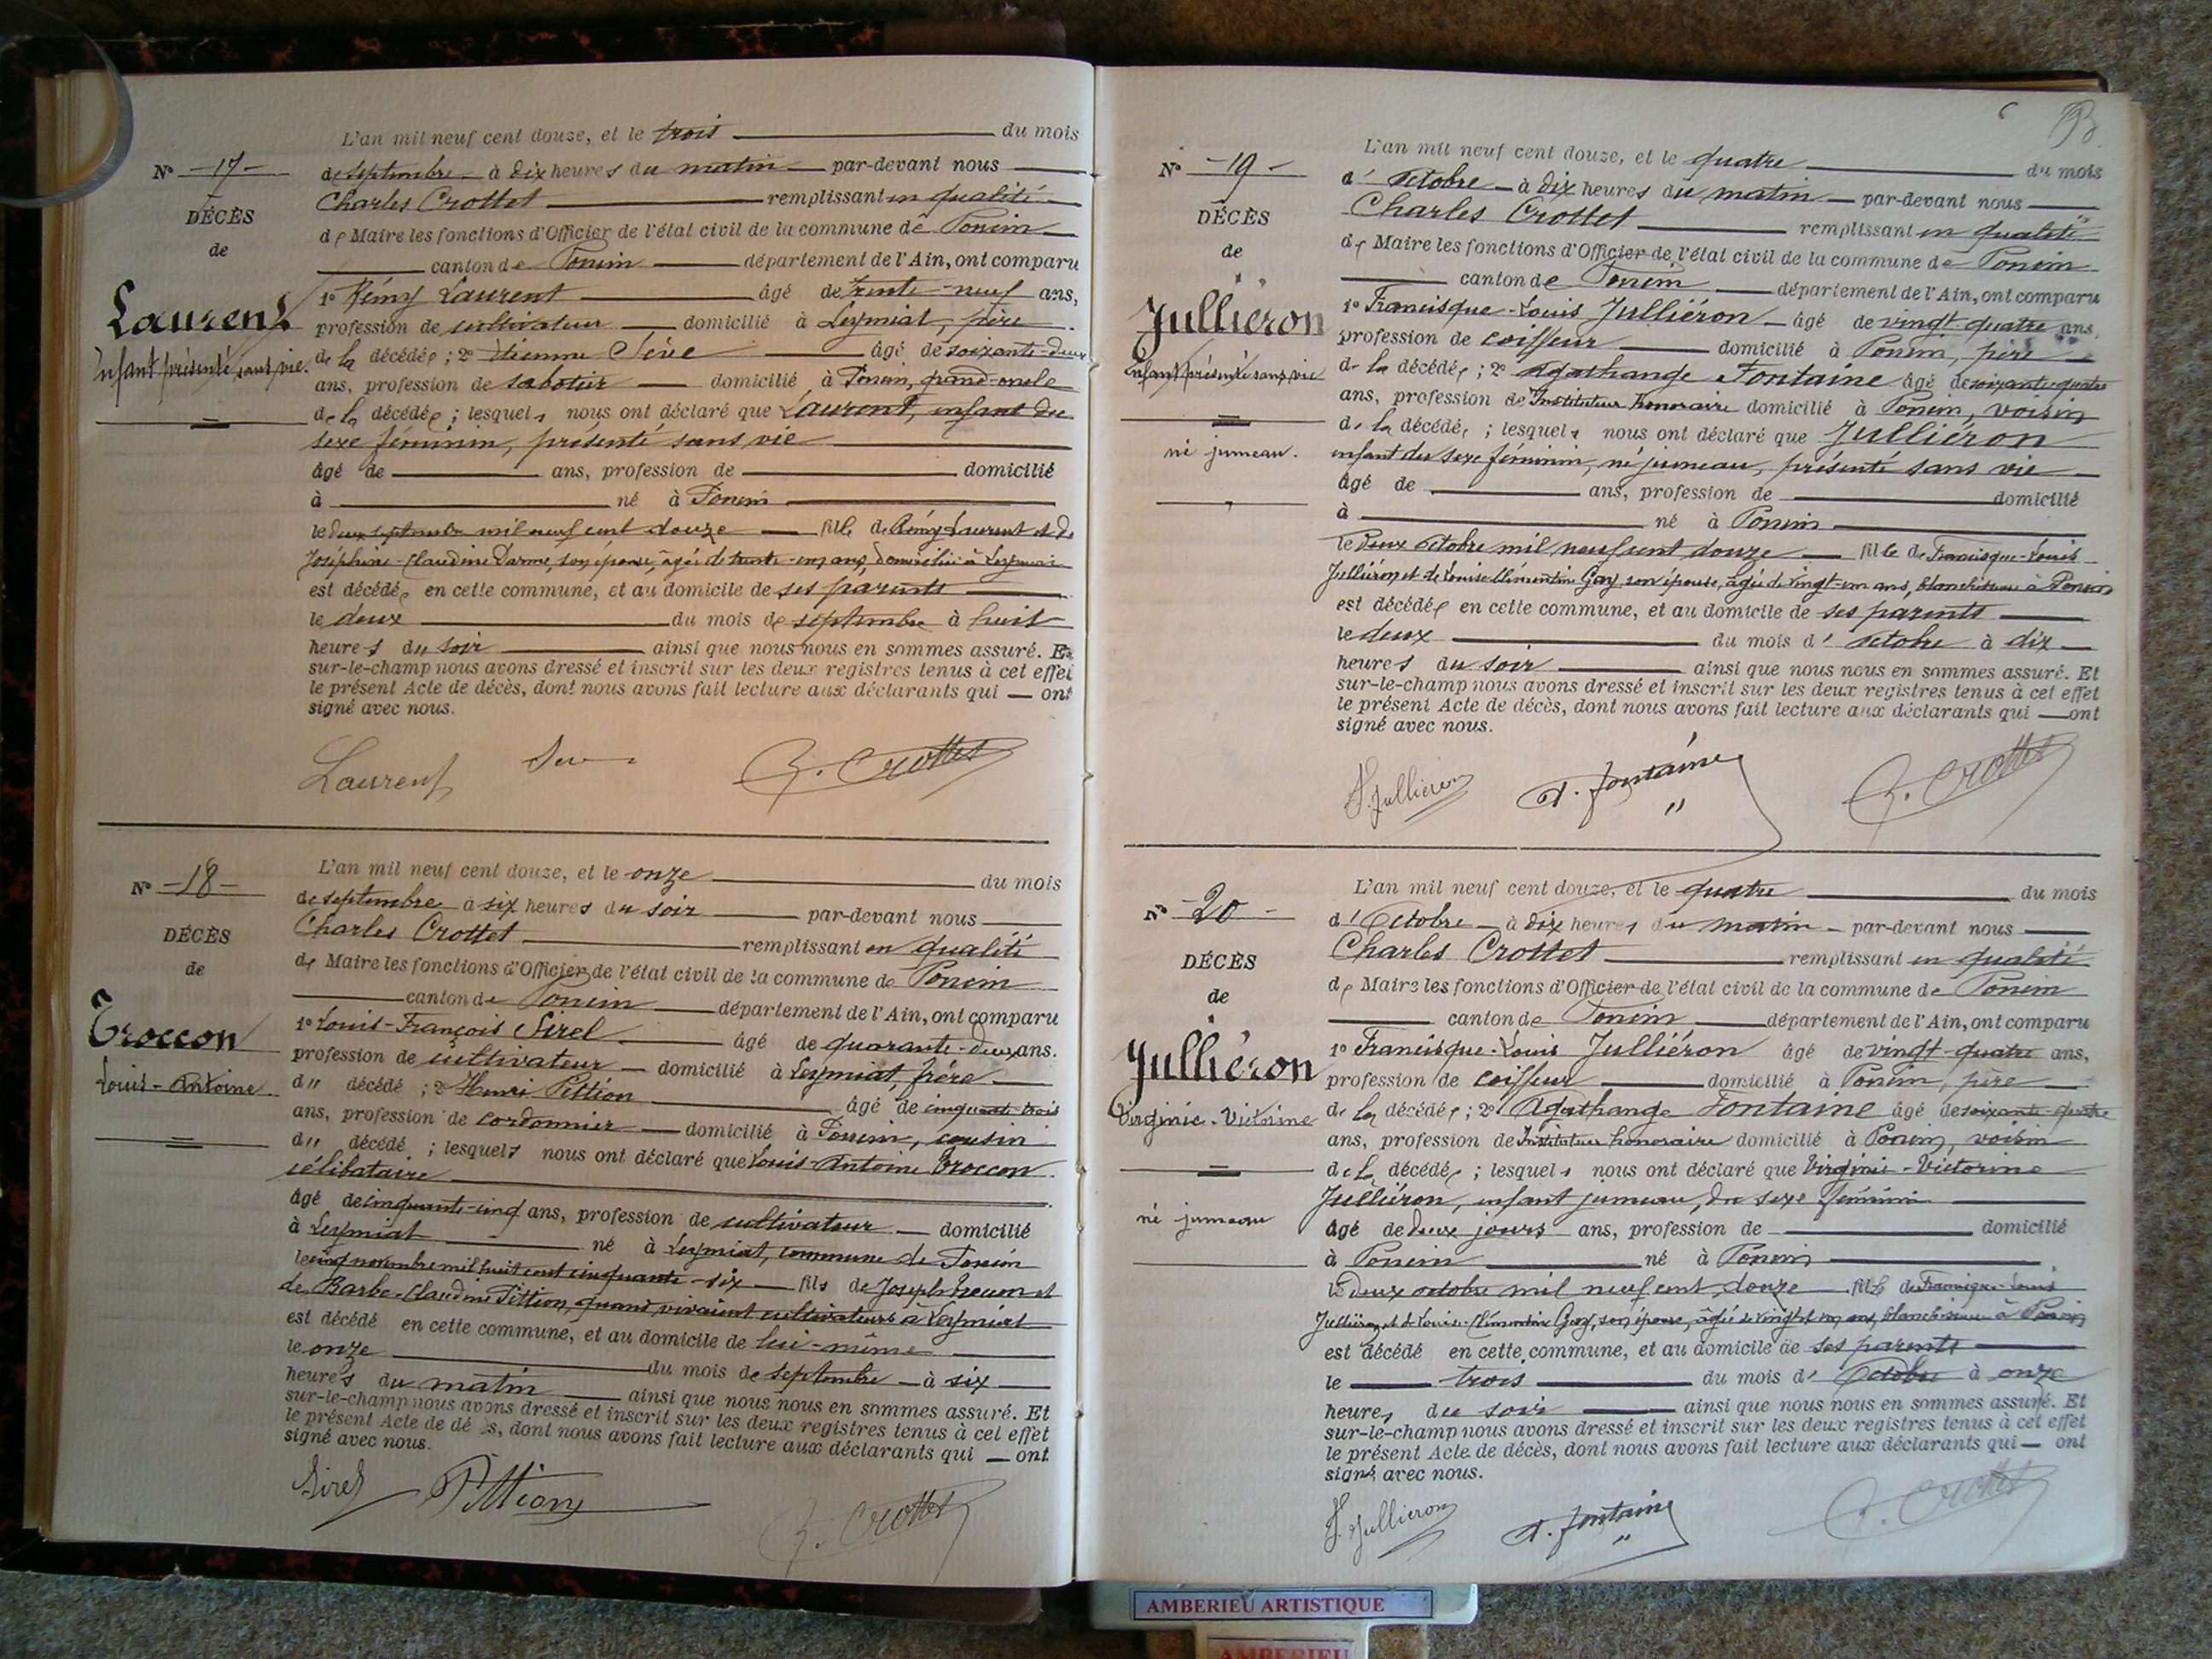 L'an mil neuf cent douze, et le trois du mois
N° -17-
de septembre à dix heures du matin par-devant nous
Charles Crottet remplissant en qualité
DÉCÈS
de Maire les fonctions d'Officier de l'état civil de la commune de Poncin
de
canton de Poncin département de l'Ain, ont comparu
Laurent
1° Rémy Laurent âgé de trente-neuf ans,
profession de cultivateur domicilié à Leymiat, père
Enfant présenté sans vie.
de la décédée ; 2° Etienne Sève âgé de soixante-deux
ans, profession de sabotier domicilié à Poncin, grand-oncle
de la décédée ; lesquels nous ont déclaré que Laurent, enfant du
sexe féminin, présenté sans vie
âgé de ans, profession de domicilié
à né à Poncin
le deux septembre mil neuf cent douze fille de Rémy Laurent et de
Joséphine-Claudine Darme, son épouse, âgée de trente-un ans, domiciliée à Leymiat
est décédée en cette commune, et au domicile de ses parents
le deux du mois de septembre à huit
heures du soir ainsi que nous nous en sommes assuré. Et
sur-le-champ nous avons dressé et inscrit sur les deux registres tenus à cet effet
le présent Acte de décès, dont nous avons fait lecture aux déclarants qui — ont
signé avec nous.
Laurent C. Crottet
L'an mil neuf cent douze, et le onze du mois
N° -18-
de septembre à six heures du soir par-devant nous
Charles Crottet remplissant en qualité
DÉCÈS
de Maire les fonctions d'Officier de l'état civil de la commune de Poncin
de
canton de Poncin département de l'Ain, ont comparu
Troccon
1° Louis-François Sirel âgé de quarante-deux ans.
profession de cultivateur domicilié à Leymiat, frère
Louis-Antoine
du décédé ; 2° Henri Pittion âgé de cinquante-trois
ans, profession de cordonnier domicilié à Poncin, cousin
du décédé ; lesquels nous ont déclaré que Louis-Antoine Troccon
célibataire
âgé de cinquante-cinq ans, profession de cultivateur domicilié
à Leymiat né à Leymiat, commune de Poncin
le cinq novembre mil huit cent cinquante-six fils de Joseph Troccon et
de Barbe-Claudine Pittion, quand vivaient cultivateurs à Leymiat
est décédé en cette commune, et au domicile de lui-même
le onze du mois de septembre à six
heures du matin ainsi que nous nous en sommes assuré. Et
sur-le-champ nous avons dressé et inscrit sur les deux registres tenus à cet effet
le présent Acte de dé s, dont nous avons fait lecture aux déclarants qui — ont
signé avec nous.
Sirel Pittion C. Crottet
L'an mil neuf cent douze, et le quatre du mois
N° -19-
d' octobre à dix heures du matin par-devant nous
Charles Crottet remplissant en qualité
DÉCÈS
de Maire les fonctions d'Officier de l'état civil de la commune de Poncin
de
canton de Poncin département de l'Ain, ont comparu
Julliéron
1° Francisque-Louis Julliéron âgé de vingt-quatre ans
profession de coiffeur domicilié à Poncin, père
Enfant présenté sans vie
de la décédée ; 2° Agathange Fontaine âgé de soixante-quatre
ans, profession de Instituteur honoraire domicilié à Poncin, voisin
de la décédée ; lesquels nous ont déclaré que Julliéron
né jumeau.
enfant du sexe féminin, né jumeau, présenté sans vie
âgé de ans, profession de domicilié
à né à Poncin
le deux octobre mil neuf cent douze fille de Francisque-Louis
Julliéron et de Louise Clémentine Gay, son épouse, âgée de vingt-un ans, blanchisseuse à Poncin
est décédée en cette commune, et au domicile de ses parents
le deux du mois d' octobre à dix
heures du soir ainsi que nous nous en sommes assuré. Et
sur-le-champ nous avons dressé et inscrit sur les deux registres tenus à cet effet
le présent Acte de décès, dont nous avons fait lecture aux déclarants qui — ont
signé avec nous.
F. Julliéron A. Fontaine C. Crottet
L'an mil neuf cent douze, et le quatre du mois
N° -20-
d' Octobre à dix heures du matin par-devant nous
Charles Crottet remplissant en qualité
DÉCÈS
de Maire les fonctions d'Officier de l'état civil de la commune de Poncin
de
canton de Poncin département de l'Ain, ont comparu
Julliéron
1° Francisque-Louis Julliéron âgé de vingt-quatre ans,
profession de coiffeur domicilié à Poncin, père
Virginie-Victorine
de la décédée ; 2° Agathange Fontaine âgé de soixante-quatre
ans, profession de Instituteur honoraire domicilié à Poncin, voisin
de la décédée ; lesquels nous ont déclaré que Virginie-Victorine
Julliéron, enfant jumeau, du sexe féminin
né jumeau
âgé de deux jours ans, profession de domicilié
à Poncin né à Poncin
le deux octobre mil neuf cent douze fille de Francisque-Louis
Julliéron et de Louise-Clémentine Gay, son épouse, âgée de vingt et un ans, blanchisseuse à Poncin
est décédé en cette commune, et au domicile de ses parents
le trois du mois d' Octobre à onze
heures du soir ainsi que nous nous en sommes assuré. Et
sur-le-champ nous avons dressé et inscrit sur les deux registres tenus à cet effet
le présent Acte de décès, dont nous avons fait lecture aux déclarants qui — ont
signé avec nous.
F. Julliéron A. Fontaine C. Crottet
AMBERIEU ARTISTIQUE
AMBERIEU